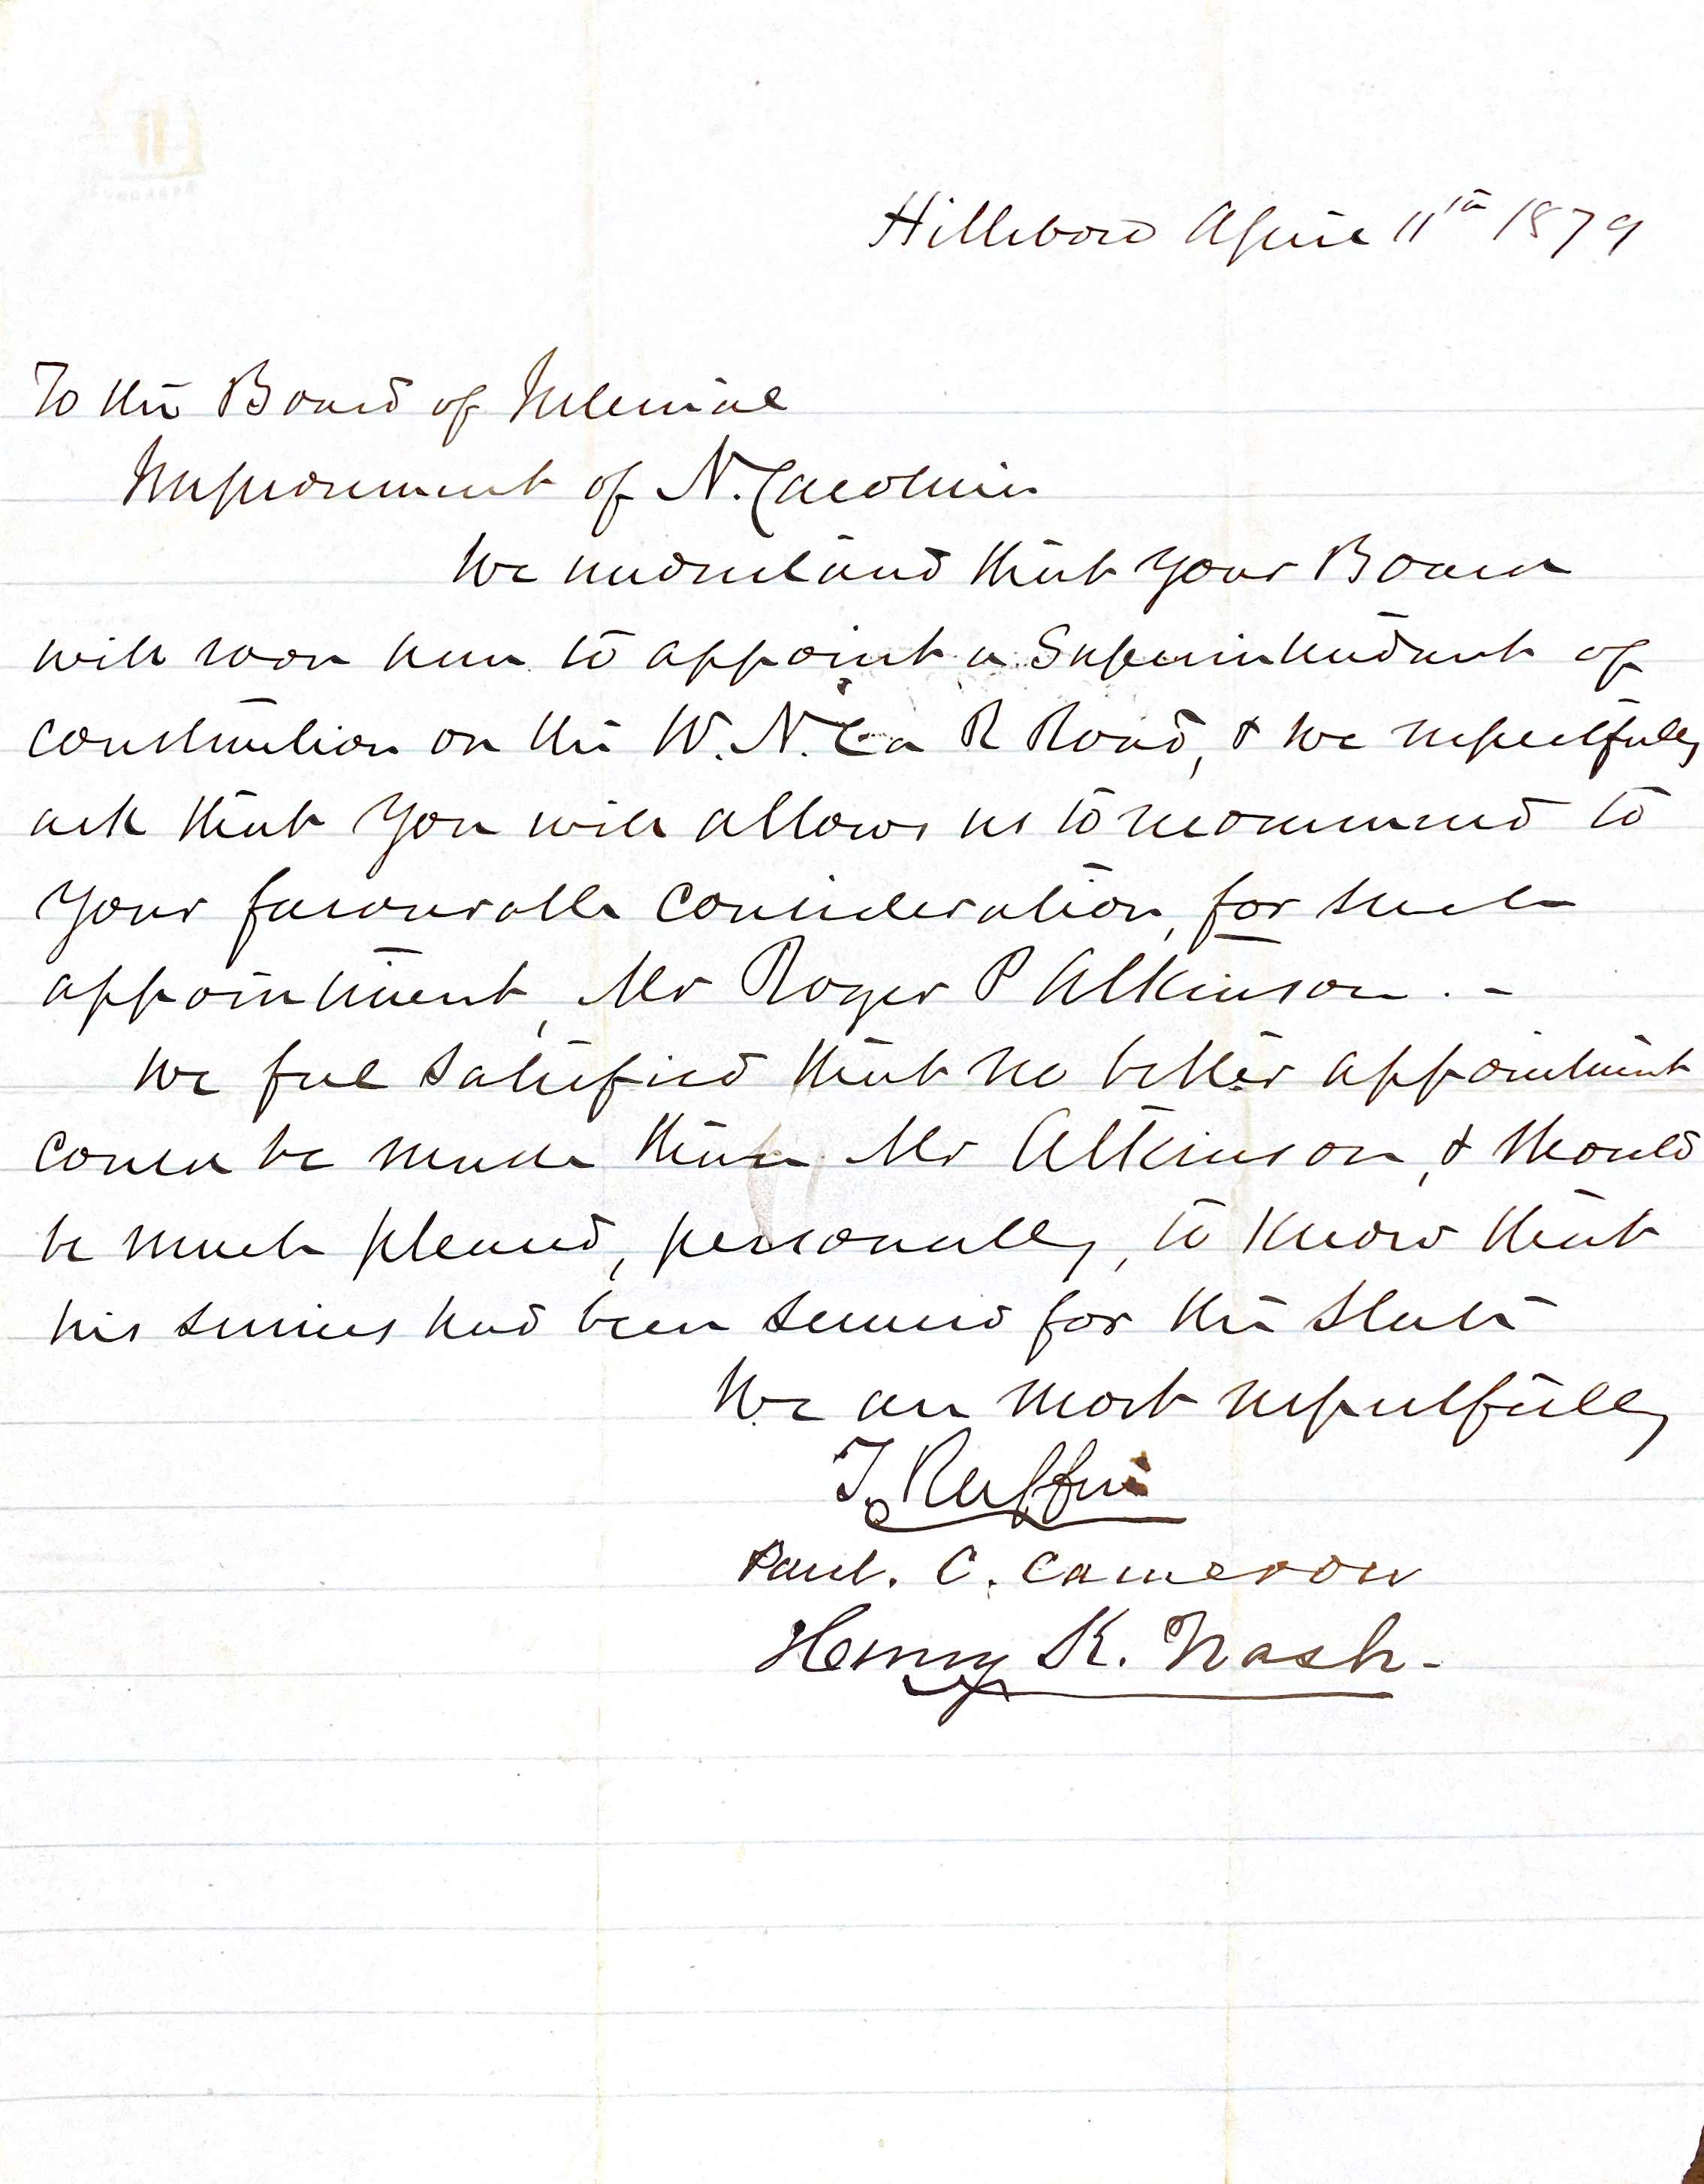 Hillsboro April 11th 1879
To the Board of Internal
Improvement of N. Carolina
We understand that your Board
will soon have to appoint a Superintendent of
construction on the W. N. Ca R Road, & we respectfully
ask that you will allow us to recommend to
your favourable consideration, for such
appointment, Mr Roger P Atkinson. -
We feel satisfied that no better appointment
could be made than Mr Atkinson, & should
be much pleased, personally, to know that
his services had been secured for the State
We are most respectfully
T. Ruffin
Paul. C. Cameron
Henry K. Nash.